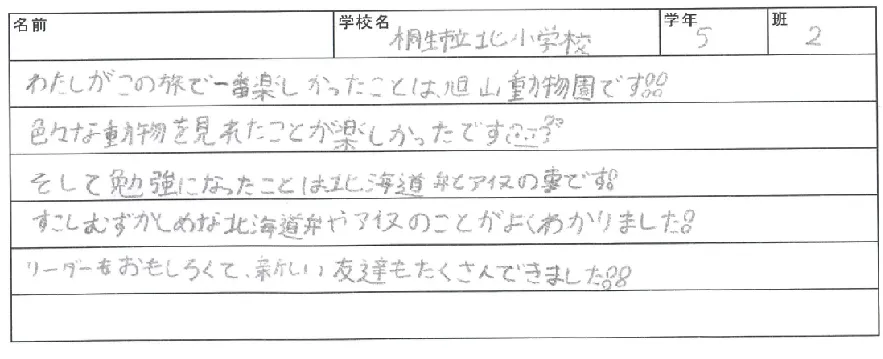 名前 学校名 桐生市立北小学校 学年 5 班 2
わたしがこの旅で一番楽しかったことは、旭山動物園です!!
色々な動物を見れたことが楽しかったです
そして勉強になったことは北海道弁とアイヌの事です!
すこしむずかしめな北海道弁やアイヌのことがよくわかりました!
リーダーもおもしろくて、新しい友達もたくさんできました!!